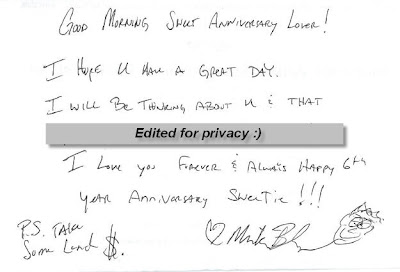 Good Morning Sweet Anniversary Lover!
I Hope U Have A Great Day.
I will Be Thinking About U & That
Edited for privacy :)
I Love you Forever & Always Happy 6th
Year Anniversary Sweetie!!!
P.S. Take
Some Lunch $.